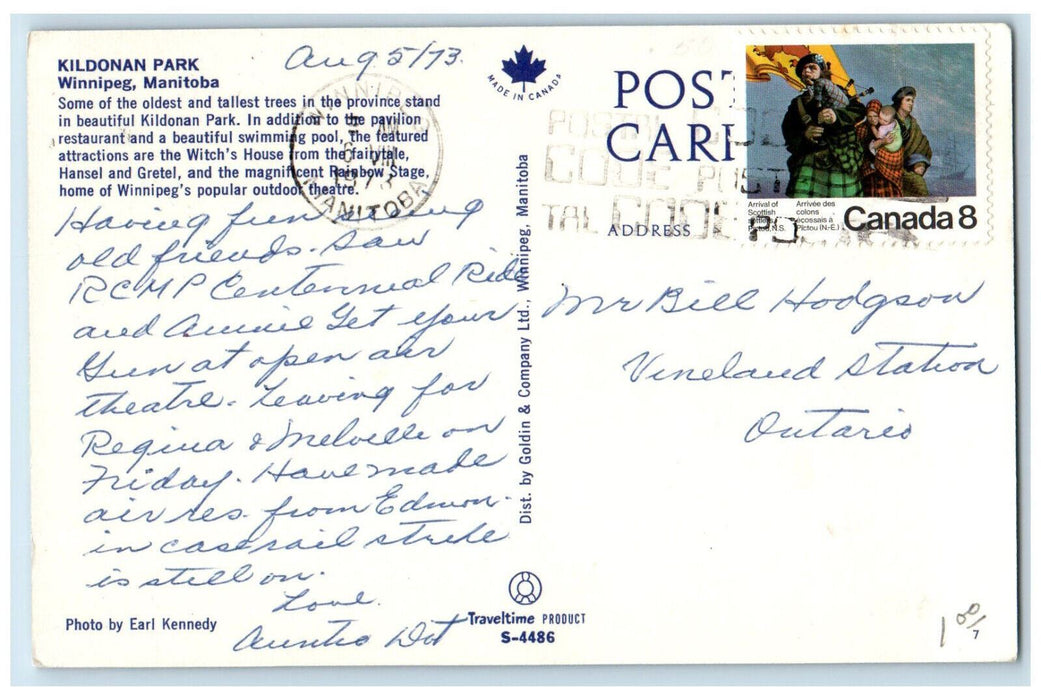 KILDONAN PARK
Winnipeg, Manitoba
Some of the oldest and tallest trees in the province stand
in beautiful Kildonan Park. In addition to the pavilion
restaurant and a beautiful swimming pool, the featured
attractions are the Witch's House from the fairytale,
Hansel and Gretel, and the magnificent Rainbow Stage,
home of Winnipeg's popular outdoor theatre.
Aug 5/73.
Having fun seeing
old friends. Saw
RCMP Centennial Ride
and Annie Get your
Gun at open air
theatre. Leaving for
Regina & Melville on
Friday. Have made
air res. from Edmon.
in case rail strike
is still on.
Love.
Auntie Dot
Photo by Earl Kennedy
MADE IN CANADA
Dist. by Goldin & Company Ltd., Winnipeg, Manitoba
Traveltime PRODUCT
S-4486
WINNIPEG
MANITOBA
POST
CARD
ADDRESS
POSTAL CODE
CODE POSTAL
Arrival of
Scottish
settlers
Pictou, N.S.
Arrivée des
colons
écossais à
Pictou (N.-E.)
Canada 8
Mr Bill Hodgson
Vineland Station
Ontario
1 00/
7